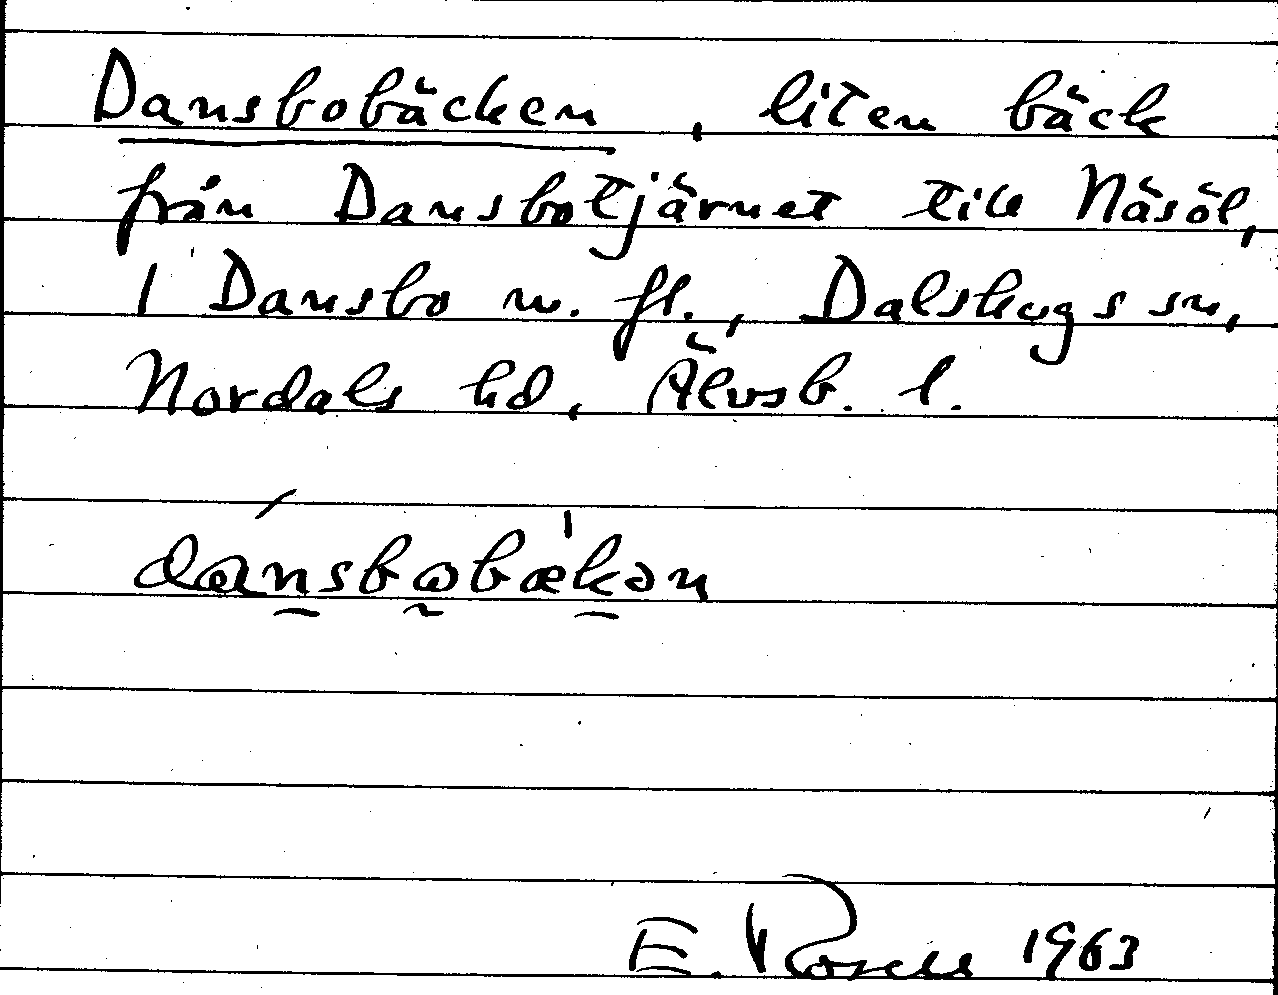 Dansbobäcken, liten bäck
från Dansbotjärnet till Näsöl,
1 Dansbo m. fl., Dalskogs sn,
Nordals hd, Älvsb. l.
dánsbɷbækən
E. Rosell 1963